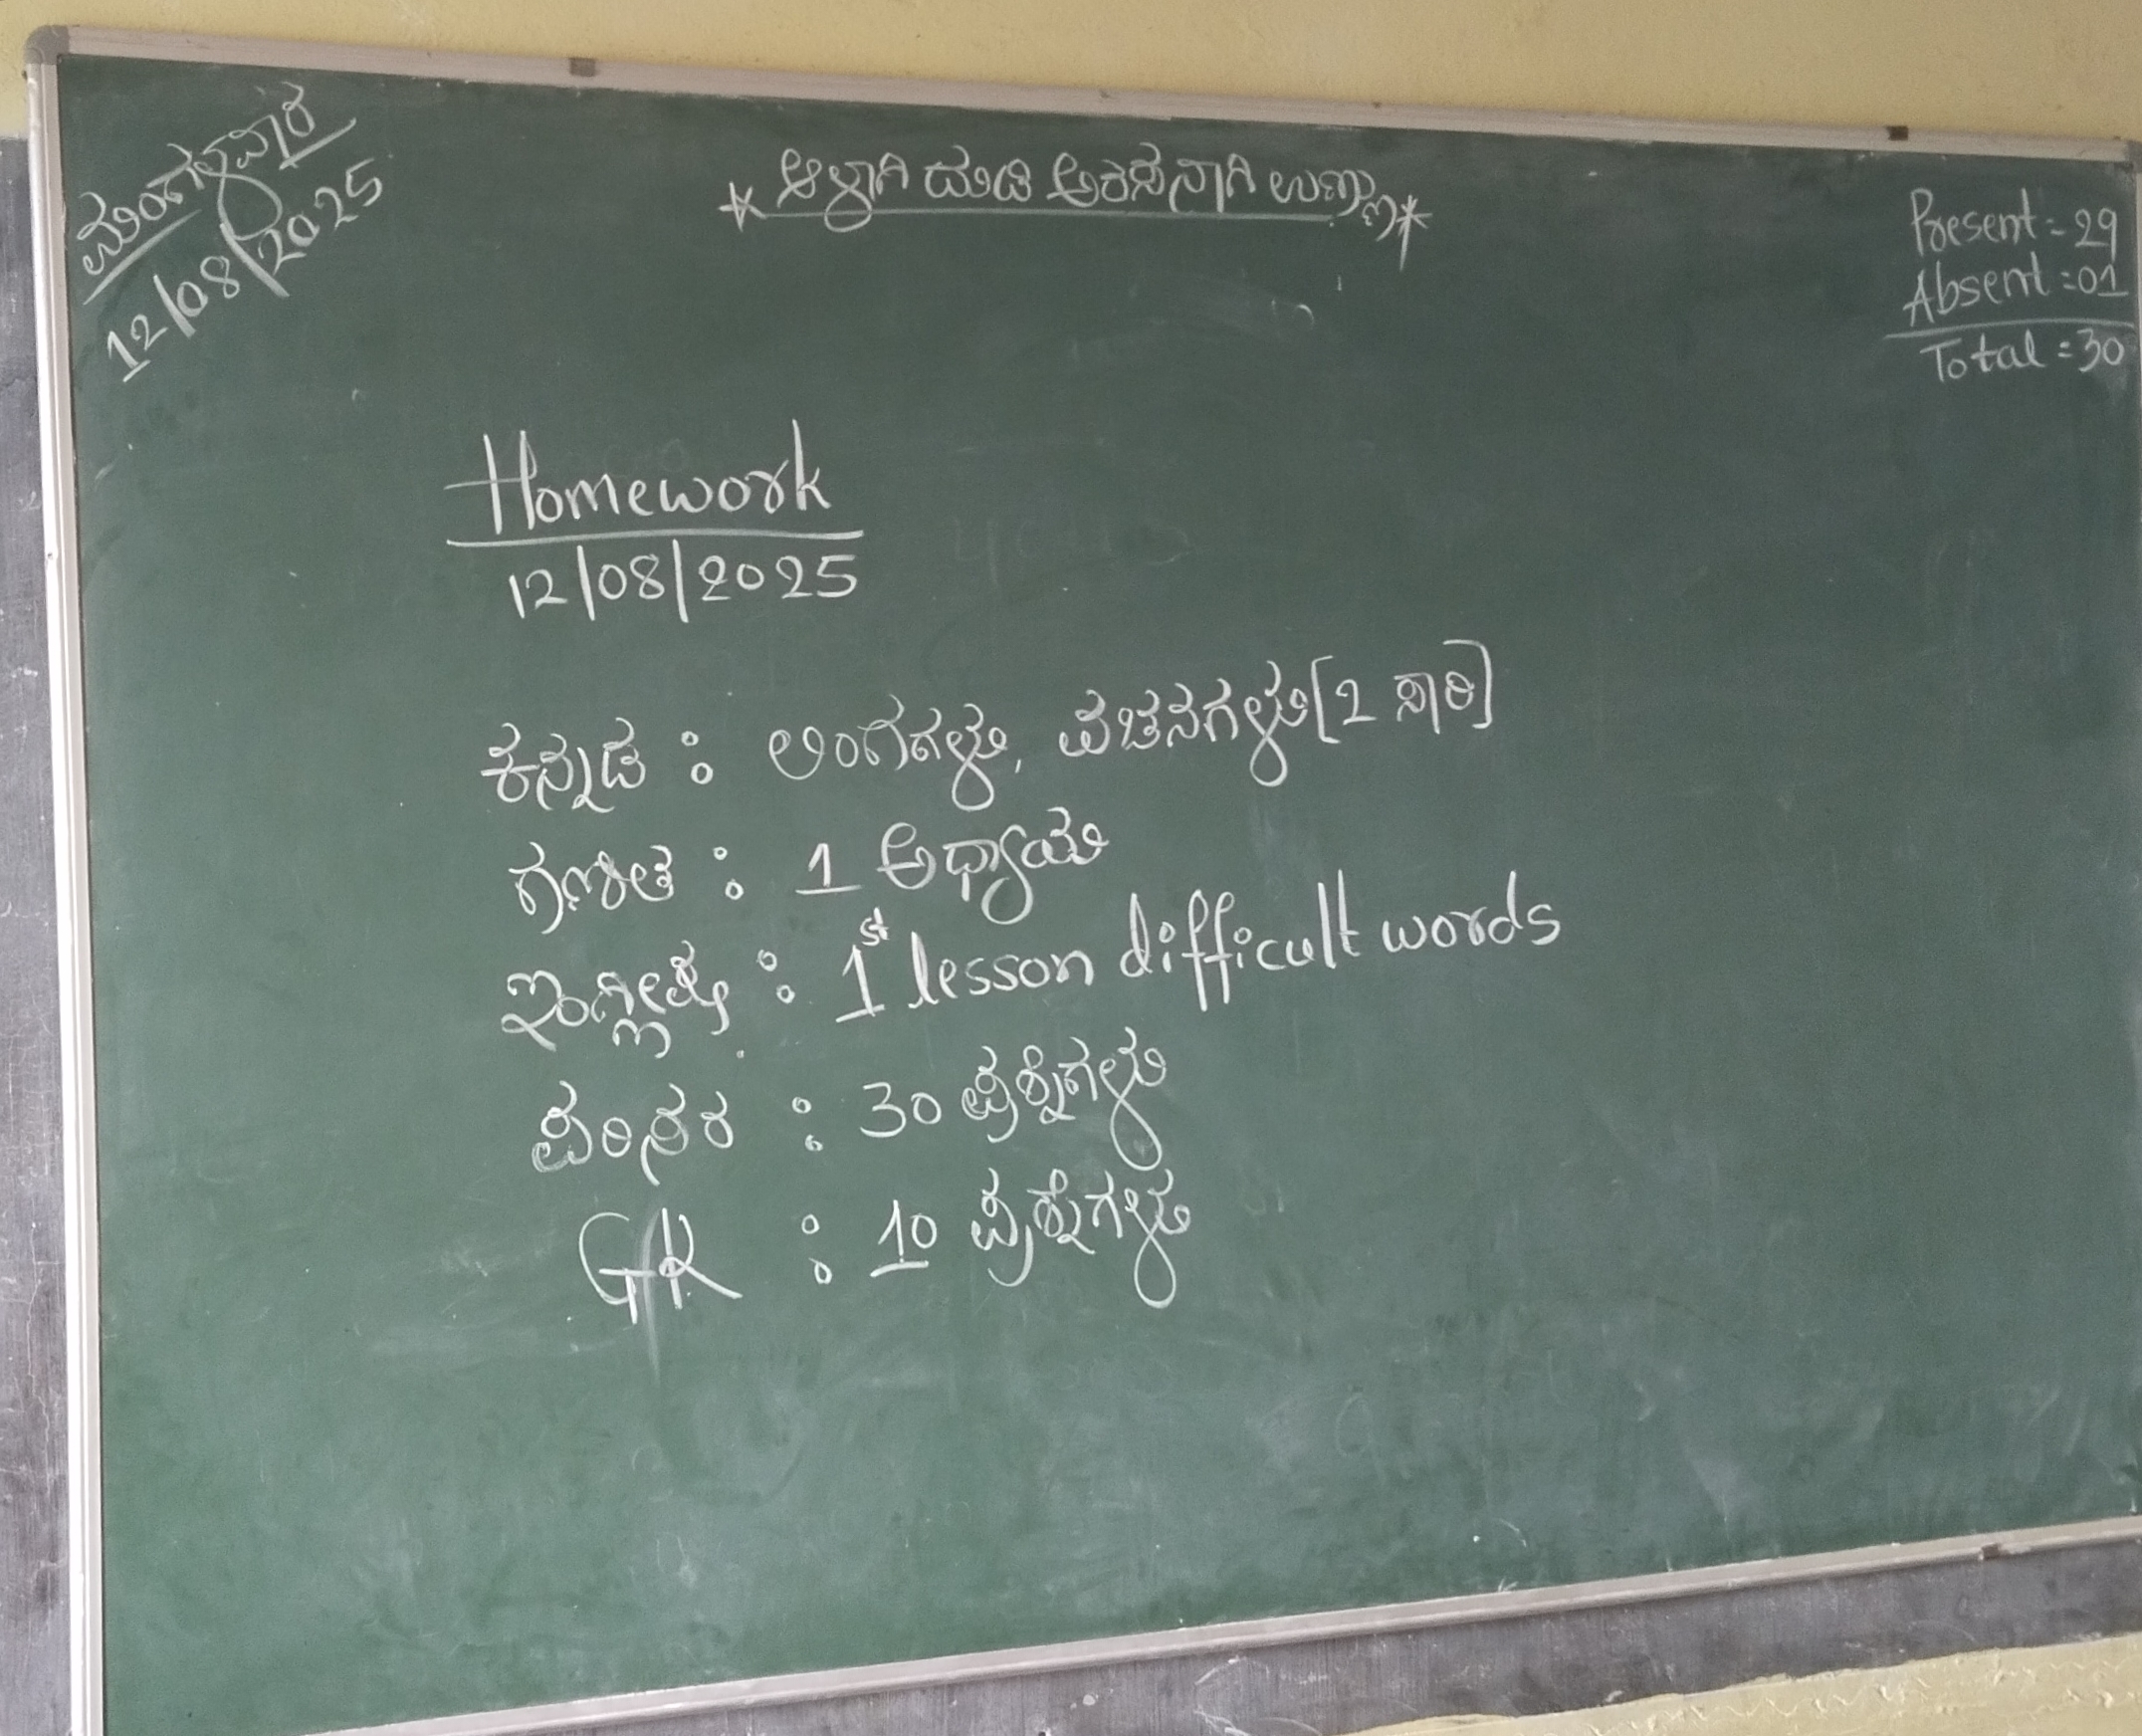 ಮಂಗಳವಾರ
12/08/2025
* ಆಳಾಗಿ ದುಡಿ ಅರಸನಾಗಿ ಉಣ್ಣು *
Present = 29
Absent = 01
Total = 30
Homework
12/08/2025
ಕನ್ನಡ : ಲಿಂಗಗಳು, ವಚನಗಳು [2 ಸಾರಿ]
ಗಣಿತ : 1 ಅಧ್ಯಾಯ
ಇಂಗ್ಲೀಷ್ : 1st lesson difficult words
ಪರಿಸರ : 30 ಪ್ರಶ್ನೆಗಳು
GK : 10 ಪ್ರಶ್ನೆಗಳು